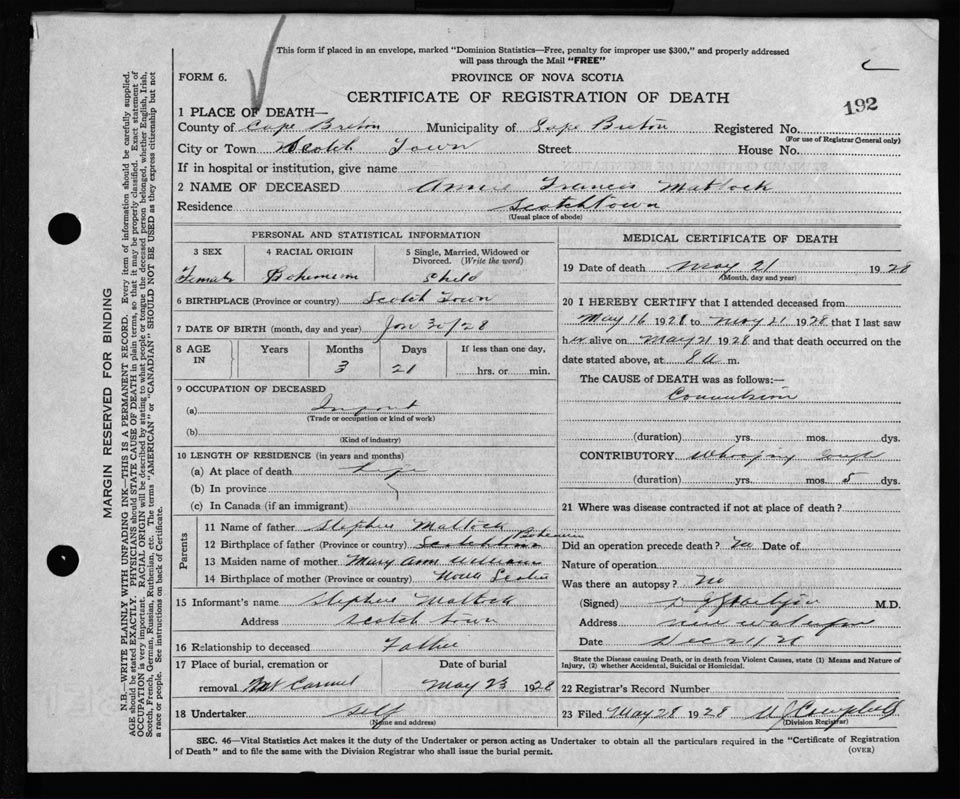 This form if placed in an envelope, marked "Dominion Statistics—Free, penalty for improper use $300," and properly addressed
will pass through the Mail "FREE"
FORM 6.
PROVINCE OF NOVA SCOTIA
CERTIFICATE OF REGISTRATION OF DEATH
192
1 PLACE OF DEATH—
County of Cape Breton Municipality of Cape Breton Registered No.
(For use of Registrar General only)
City or Town Scotch Town Street House No.
If in hospital or institution, give name
2 NAME OF DECEASED Annie Francis Mattock
Residence Scotchtown
(Usual place of abode)
PERSONAL AND STATISTICAL INFORMATION
3 SEX 4 RACIAL ORIGIN 5 Single, Married, Widowed or
Divorced. (Write the word)
Female Bohemian Child
6 BIRTHPLACE (Province or country) Scotch Town
7 DATE OF BIRTH (month, day and year) Jan 30/28
8 AGE IN Years Months Days If less than one day,
3 21 hrs. or min.
9 OCCUPATION OF DECEASED
(a) Infant
(Trade or occupation or kind of work)
(b)
(Kind of industry)
10 LENGTH OF RESIDENCE (in years and months)
(a) At place of death life
(b) In province
(c) In Canada (if an immigrant)
Parents
11 Name of father Stephen Mattock
12 Birthplace of father (Province or country) Scotchtown Bohemian
13 Maiden name of mother Mary Ann
14 Birthplace of mother (Province or country) Nova Scotia
15 Informant's name Stephen Mattock
Address Scotch town
16 Relationship to deceased Father
17 Place of burial, cremation or Date of burial
removal Mt Carmel May 23 1928
18 Undertaker self
(Name and address)
MEDICAL CERTIFICATE OF DEATH
19 Date of death May 21 1928
(Month, day and year)
20 I HEREBY CERTIFY that I attended deceased from
May 16 1928 to May 21 1928 that I last saw
her alive on May 21 1928 and that death occurred on the
date stated above, at 8 a m.
The CAUSE OF DEATH was as follows:—
Convulsion
(duration) yrs. mos. dys.
CONTRIBUTORY Whooping Cough
(duration) yrs. mos. 5 dys.
21 Where was disease contracted if not at place of death?
Did an operation precede death? No Date of
Nature of operation
Was there an autopsy? No
(Signed) M.D.
Address New Waterford
Date
State the Disease causing Death, or in death from Violent Causes, state (1) Means and Nature of
Injury, (2) whether Accidental, Suicidal or Homicidal.
22 Registrar's Record Number
23 Filed May 28 1928 Campbell
(Division Registrar)
SEC. 46—Vital Statistics Act makes it the duty of the Undertaker or person acting as Undertaker to obtain all the particulars required in the "Certificate of Registration
of Death" and to file the same with the Division Registrar who shall issue the burial permit.
(OVER)
MARGIN RESERVED FOR BINDING
N.B.—WRITE PLAINLY WITH UNFADING INK—THIS IS A PERMANENT RECORD. Every item of information should be carefully supplied.
AGE should be stated EXACTLY. PHYSICIANS should STATE CAUSE OF DEATH in plain terms, so that it may be properly classified. Exact statement of
OCCUPATION is very important. RACIAL ORIGIN will be described by stating to what people or tongue the deceased person belonged, whether English, Irish,
Scotch, French, German, Russian, Ruthenian, etc. The terms "AMERICAN" or "CANADIAN" SHOULD NOT BE USED as they express citizenship but not
a race or people. See instructions on back of Certificate.